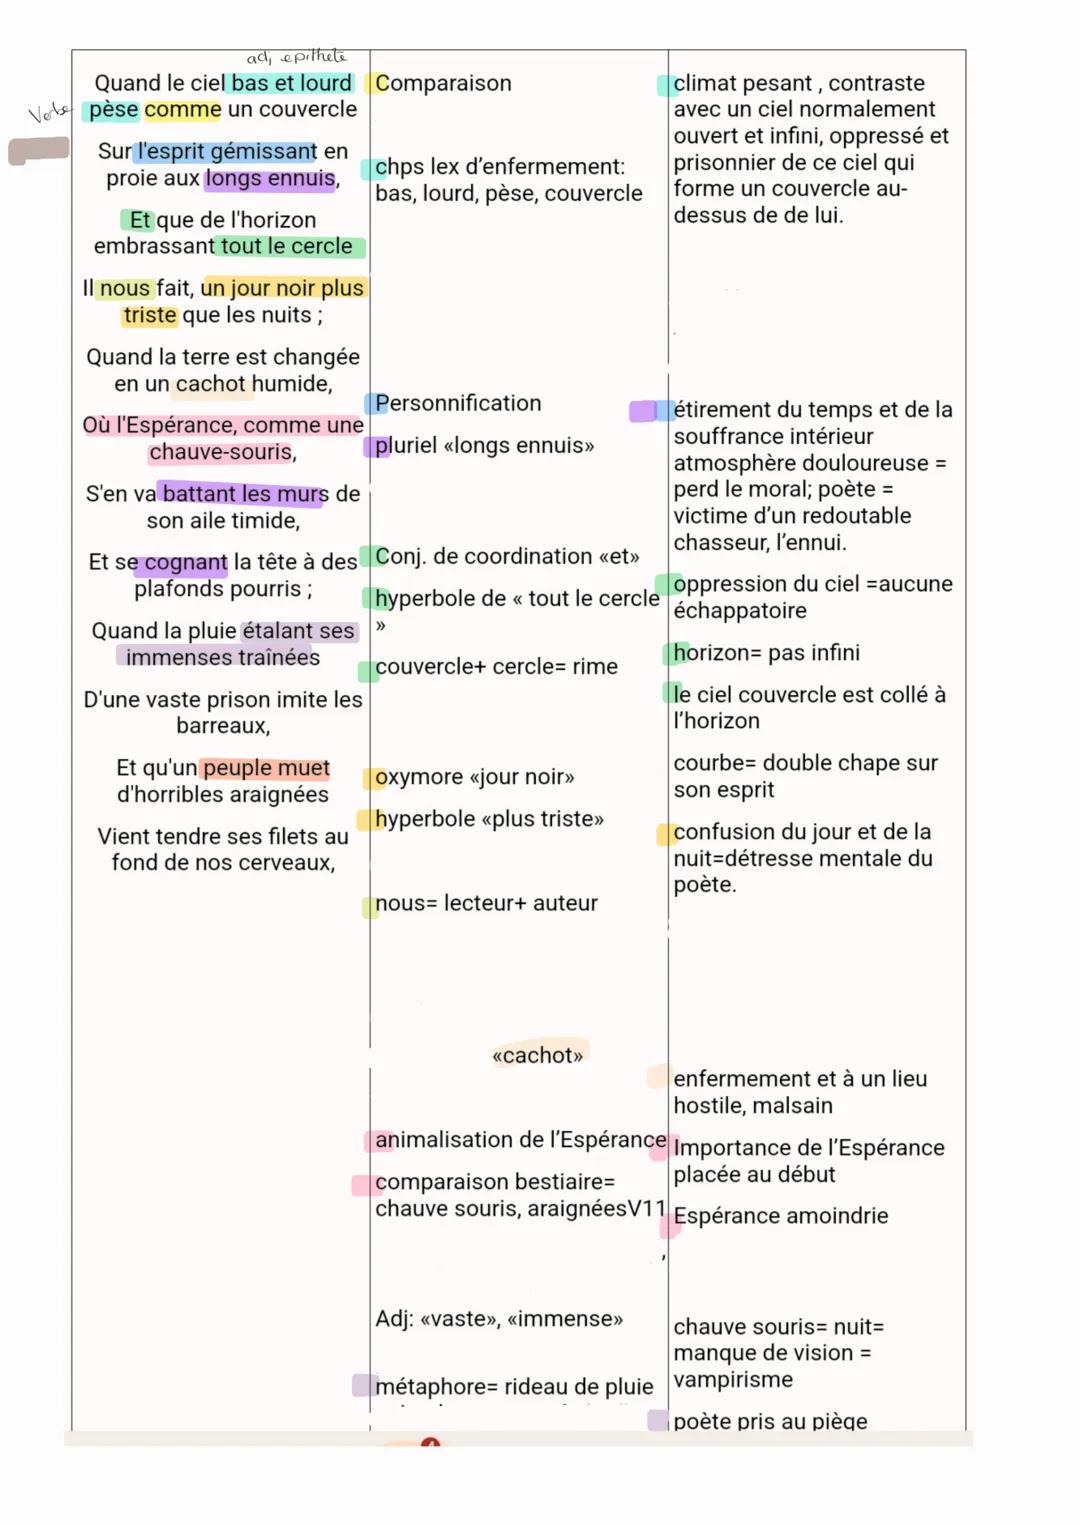 adj epithète
Quand le ciel bas et lourd
pèse comme un couvercle
Verbe
Sur l'esprit gémissant en
proie aux longs ennuis,
Et que de l'horizon
embrassant tout le cercle
Il nous fait, un jour noir plus
triste que les nuits ;
Quand la terre est changée
en un cachot humide,
Où l'Espérance, comme une
chauve-souris,
S'en va battant les murs de
son aile timide,
Et se cognant la tête à des
plafonds pourris ;
Quand la pluie étalant ses
immenses traînées
D'une vaste prison imite les
barreaux,
Et qu'un peuple muet
d'horribles araignées
Vient tendre ses filets au
fond de nos cerveaux,
Comparaison
chps lex d'enfermement:
bas, lourd, pèse, couvercle
Personnification
pluriel «longs ennuis»
Conj. de coordination «et»
hyperbole de « tout le cercle
»
couvercle+ cercle= rime
oxymore «jour noir»
hyperbole «plus triste»
nous= lecteur+ auteur
«cachot»
animalisation de l'Espérance
comparaison bestiaire=
chauve souris, araignéesV11
,
Adj: «vaste», «immense»
métaphore= rideau de pluie
climat pesant , contraste
avec un ciel normalement
ouvert et infini, oppressé et
prisonnier de ce ciel qui
forme un couvercle au-
dessus de de lui.
étirement du temps et de la
souffrance intérieur
atmosphère douloureuse =
perd le moral; poète =
victime d'un redoutable
chasseur, l'ennui.
oppression du ciel =aucune
échappatoire
horizon= pas infini
le ciel couvercle est collé à
l'horizon
courbe= double chape sur
son esprit
confusion du jour et de la
nuit=détresse mentale du
poète.
enfermement et à un lieu
hostile, malsain
Importance de l'Espérance
placée au début
Espérance amoindrie
chauve souris= nuit=
manque de vision =
vampirisme
poète pris au piège